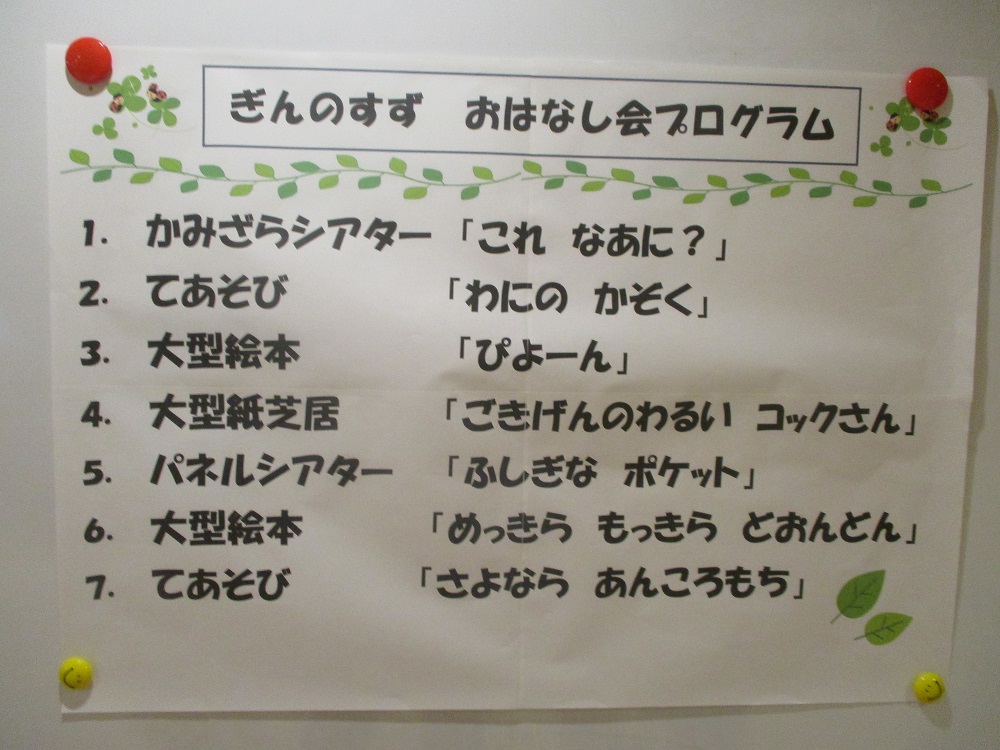 ぎんのすず　おはなし会プログラム
1. かみざらシアター 「これ　なあに？」
2. てあそび 「わにの　かぞく」
3. 大型絵本 「ぴよーん」
4. 大型紙芝居 「ごきげんのわるい　コックさん」
5. パネルシアター 「ふしぎな　ポケット」
6. 大型絵本 「めっきら　もっきら　どおんどん」
7. てあそび 「さよなら　あんころもち」